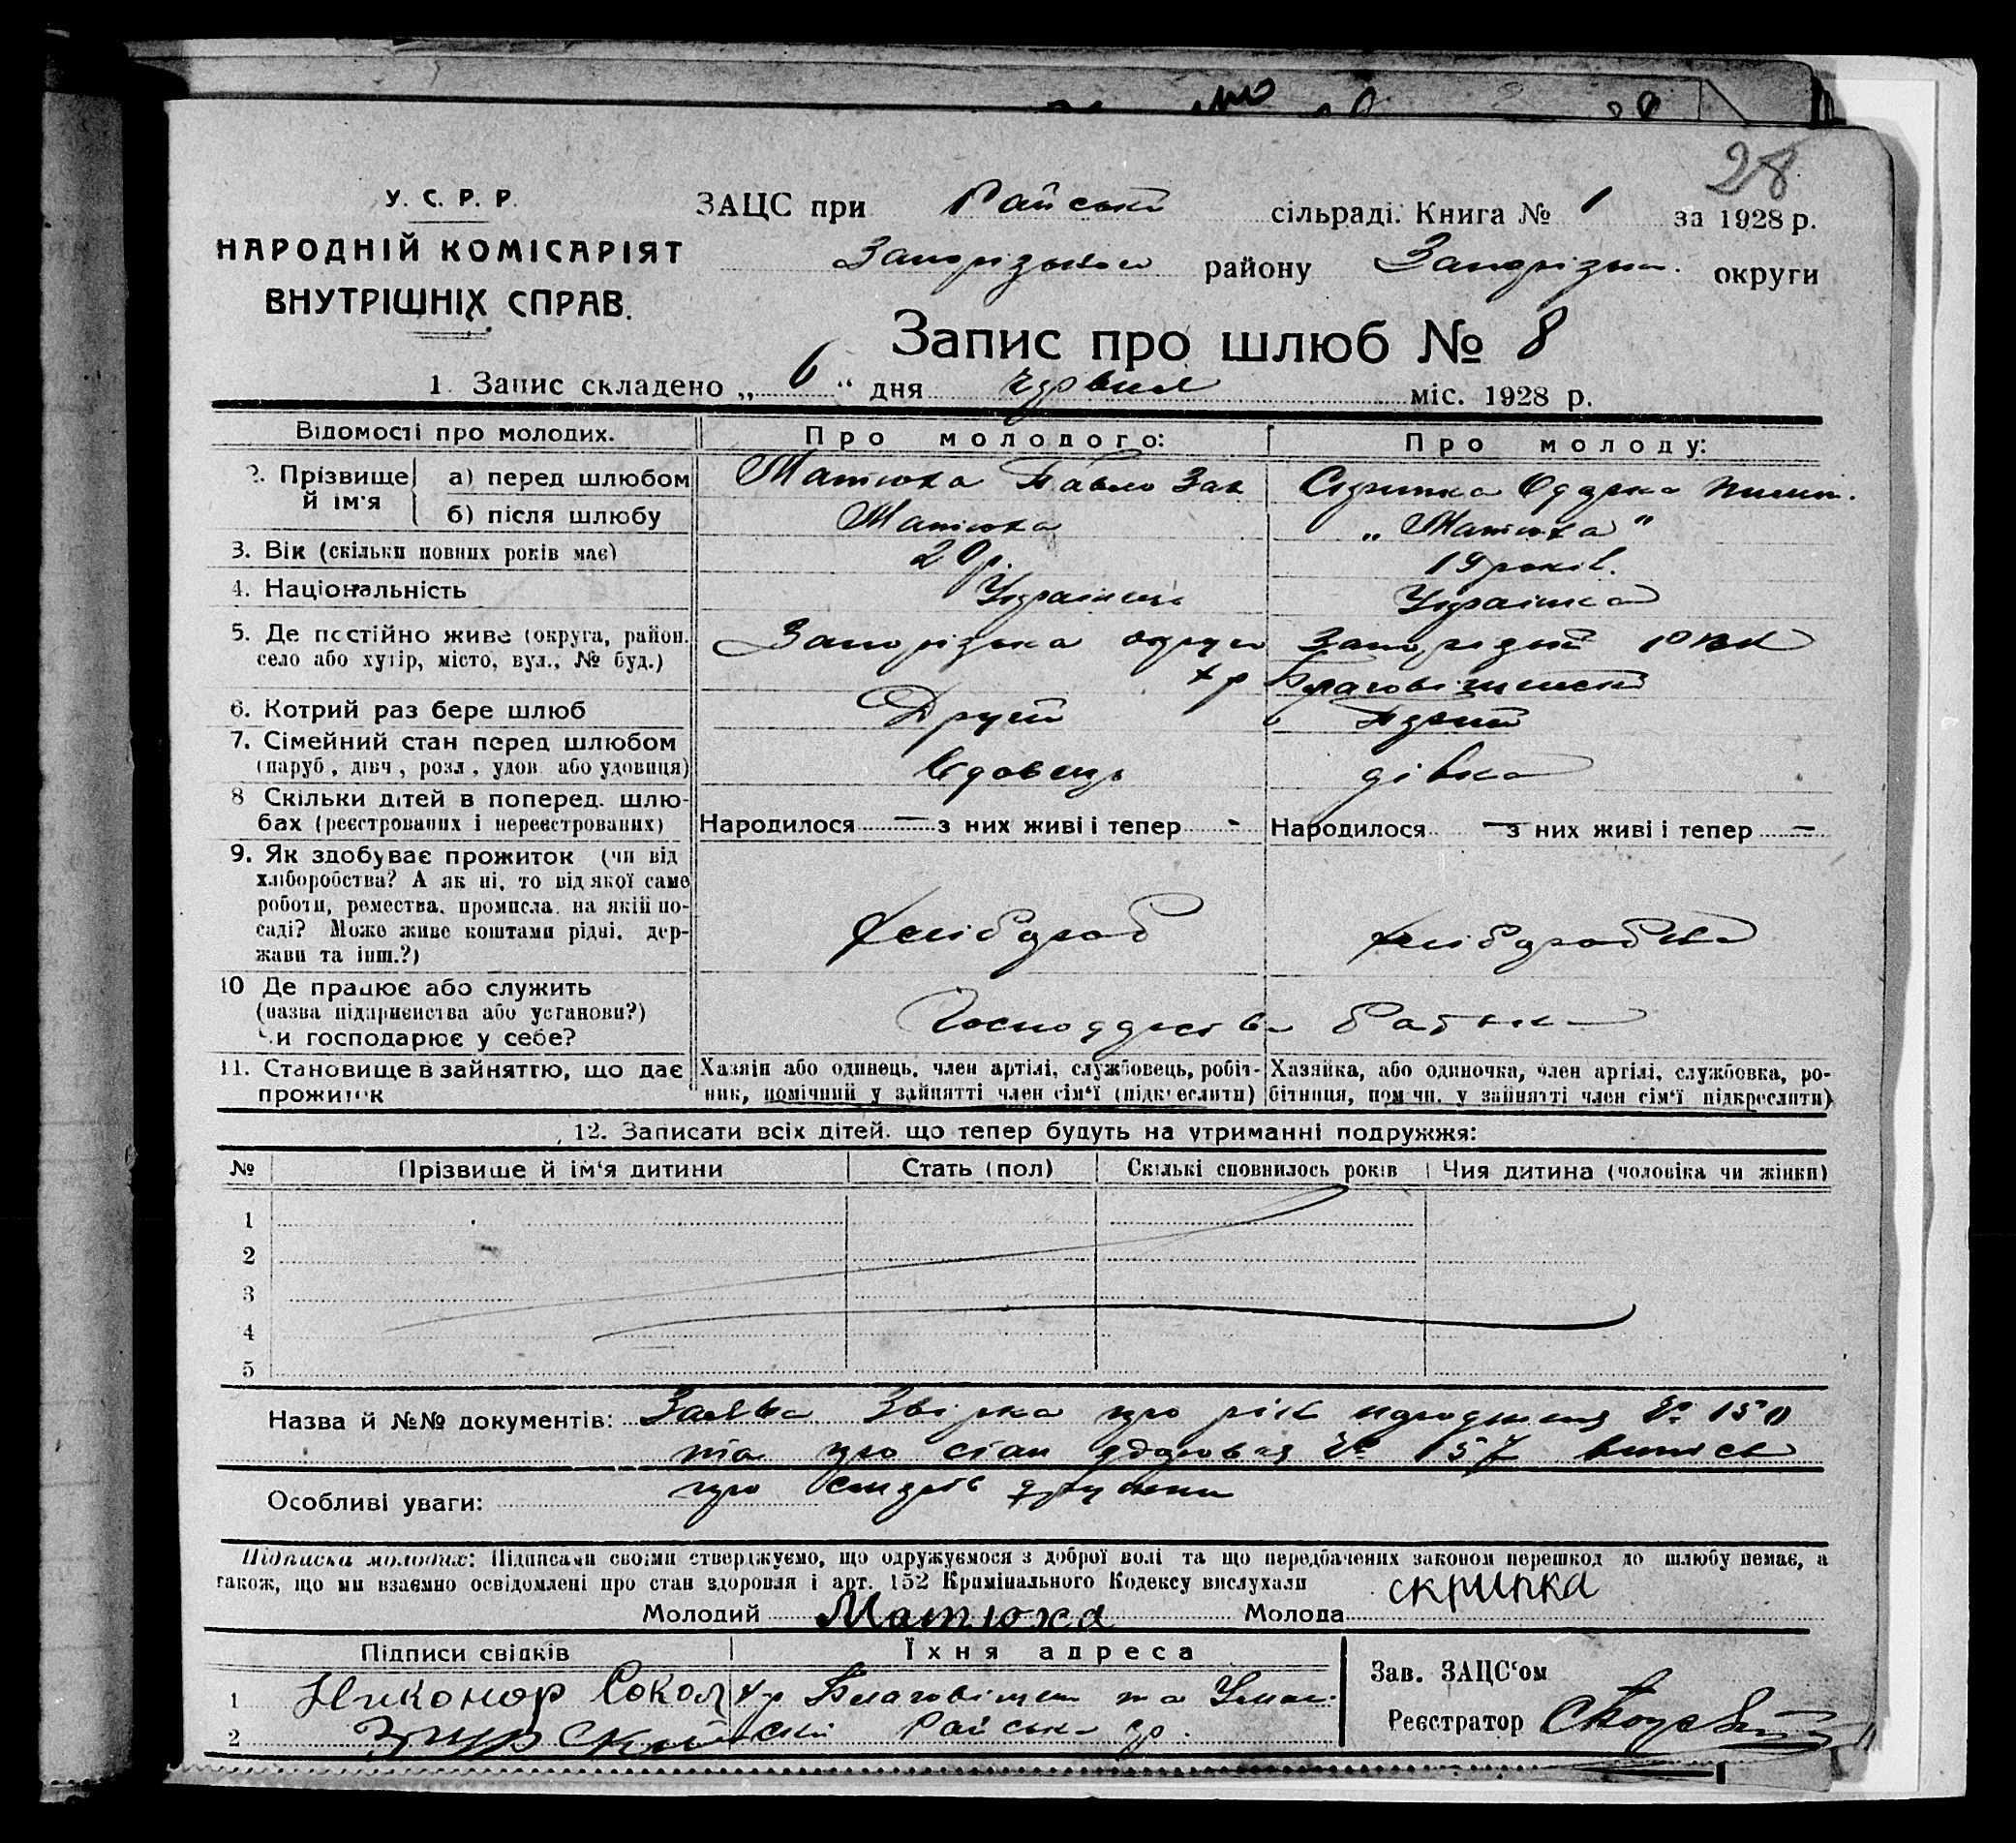 28
У. С. Р. Р.
НАРОДНІЙ КОМІСАРІЯТ
ВНУТРІШНІХ СПРАВ.
ЗАЦС при Райській сільраді. Книга № 1 за 1928 р.
Запорізького району Запорізьк. округи
Запис про шлюб № 8
1 Запис складено „ 6 “ дня червня міс. 1928 р.
Відомості про молодих. Про молодого: Про молоду:
2. Прізвище й ім'я а) перед шлюбом Матюха Павло Зах Скрипка Одарка
б) після шлюбу Матюха „Матюха“
3. Вік (скільки повних років має) 20р. 19 років.
4. Національність Українець Українка
5. Де постійно живе (округа, район. Запорізька округа Запорізький район
село або хутір, місто, вул., № буд.) хр Благовіщенский
6. Котрий раз бере шлюб Другий Перший
7. Сімейний стан перед шлюбом
(паруб, дівч, розл, удов або удовиця) Вдовець дівка
8 Скільки дітей в поперед. шлю-
бах (реєстрованих і нереєстрованих) Народилося — з них живі і тепер - Народилося — з них живі і тепер —
9. Як здобуває прожиток (чи від
хліборобства? А як ні, то від якої саме
роботи, ремества, промисла, на якій по-
саді? Може живе коштами рідні, дер-
жави та інш.?) Хлібороб Хліборобка
10 Де працює або служить
(назва підприємства або установи?)
Чи господарює у себе? Господарство батька
11. Становище в зайняттю, що дає Хазяїн або одинець, член артілі, службовець, робіт- Хазяйка, або одиночка, член артілі, службовка, ро-
прожиток ник, помічний у зайнятті член сім'ї (підкреслити) бітниця, помічн. у зайнятті член сім'ї підкреслити)
12. Записати всіх дітей, що тепер будуть на утриманні подружжя:
№ Прізвище й ім'я дитини Стать (пол) Скількі сповнилось років Чия дитина (чоловіка чи жінки)
1
2
3
4
5
Назва й №№ документів: Заява Звірка про рік народження № 150
та про стан здоровья № 157 випись
Особливі уваги: про смерть дружини
Підписка молодих: Підписами своїми стверджуємо, що одружуємося з доброї волі та що передбачених законом перешкод до шлюбу немає, а
також, що ми взаємно освідомлені про стан здоровля і арт. 152 Кримінального Кодексу вислухали
Молодий Матюха Молода скрипка
Підписи свідків Їхня адреса
1 Никонор Сокол хр Благовіщен та
2 Райська ср.
Зав. ЗАЦС'ом
Реєстратор